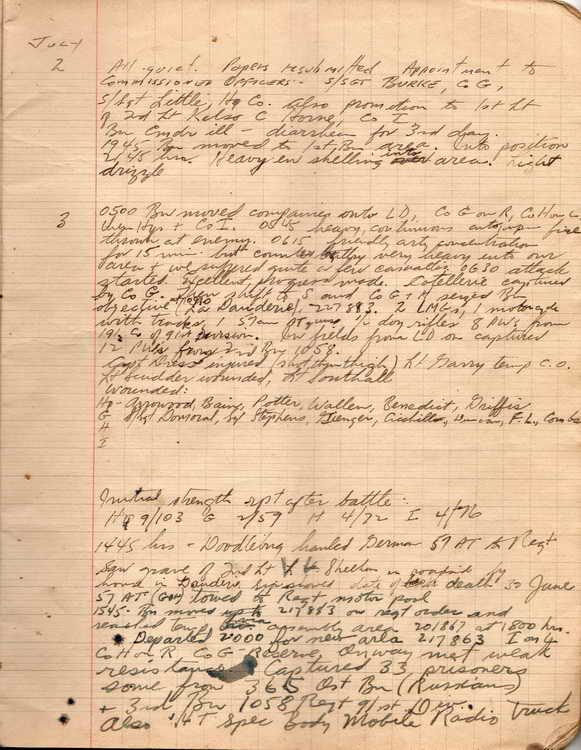 July
2 All quiet. Papers resubmitted Appointment to
Commissioned Officers - S/Sgt Burke, Co G,
S/Sgt Little, Hq Co. also promotion to 1st Lt
of 2nd Lt Kelso C Horne, Co I
Bn Cmdr ill - diarrhea for 3rd day.
1945 Bn moved to 1st Bn area. Into position
2145 hrs. Heavy en shelling into area. Light
drizzle
3 0500 Bn moved companies onto LD, Co G on R, Co H on L
+ Co I. 0545 heavy, continuous fire
thrown at enemy. 0615 friendly arty concentration
for 15 min. but counter battry very heavy into our
area + we suffered quite a few casualties 0630 attack
started. Excellent progress made. Cotellerie captured
by Co G. Then shift to S and Co G + H seized Bn
objective (La Dauderie), 217883. 2 LMGs, 1 motorcycle
with tracks, 57mm AT guns, 1/2 doz rifles 8 PWs from
of 91st Division. On fields from LD on captured
12 PWs from 2nd Bn 1058.
Capt Dress injured (thigh) Lt Garry temp C.O.
Lt Scudder wounded, Lt Southall
wounded:
Hq - Arrowood, Bains, Potter, Wallen, Benedict, Driffis
G Stephens, F.L., Combs
H
I
Initial strength rpt after battle:
Hq 9/103 G 2/59 H 4/72 I 4/76
1445 hrs - Doodlebug hauled German 57 AT to Regt
Saw grave of 2nd Lt Shelton in by
in Dauderie date of death 30 June
57 AT towed to Regt motor pool
1545 - Bn moved up to 217883 on regt order and
reached assembly area 201867 at 1800 hrs.
Departed 2000 for new area 217863 I on L
Co H on R, Co G - Reserve. On way met weak
resistance. Captured 33 prisoners
some from 365 Ost Bn (Russians)
+ 3rd Bn 1058 Regt 91st Div.
Also 1 4T Spec Body Mobile Radio Truck